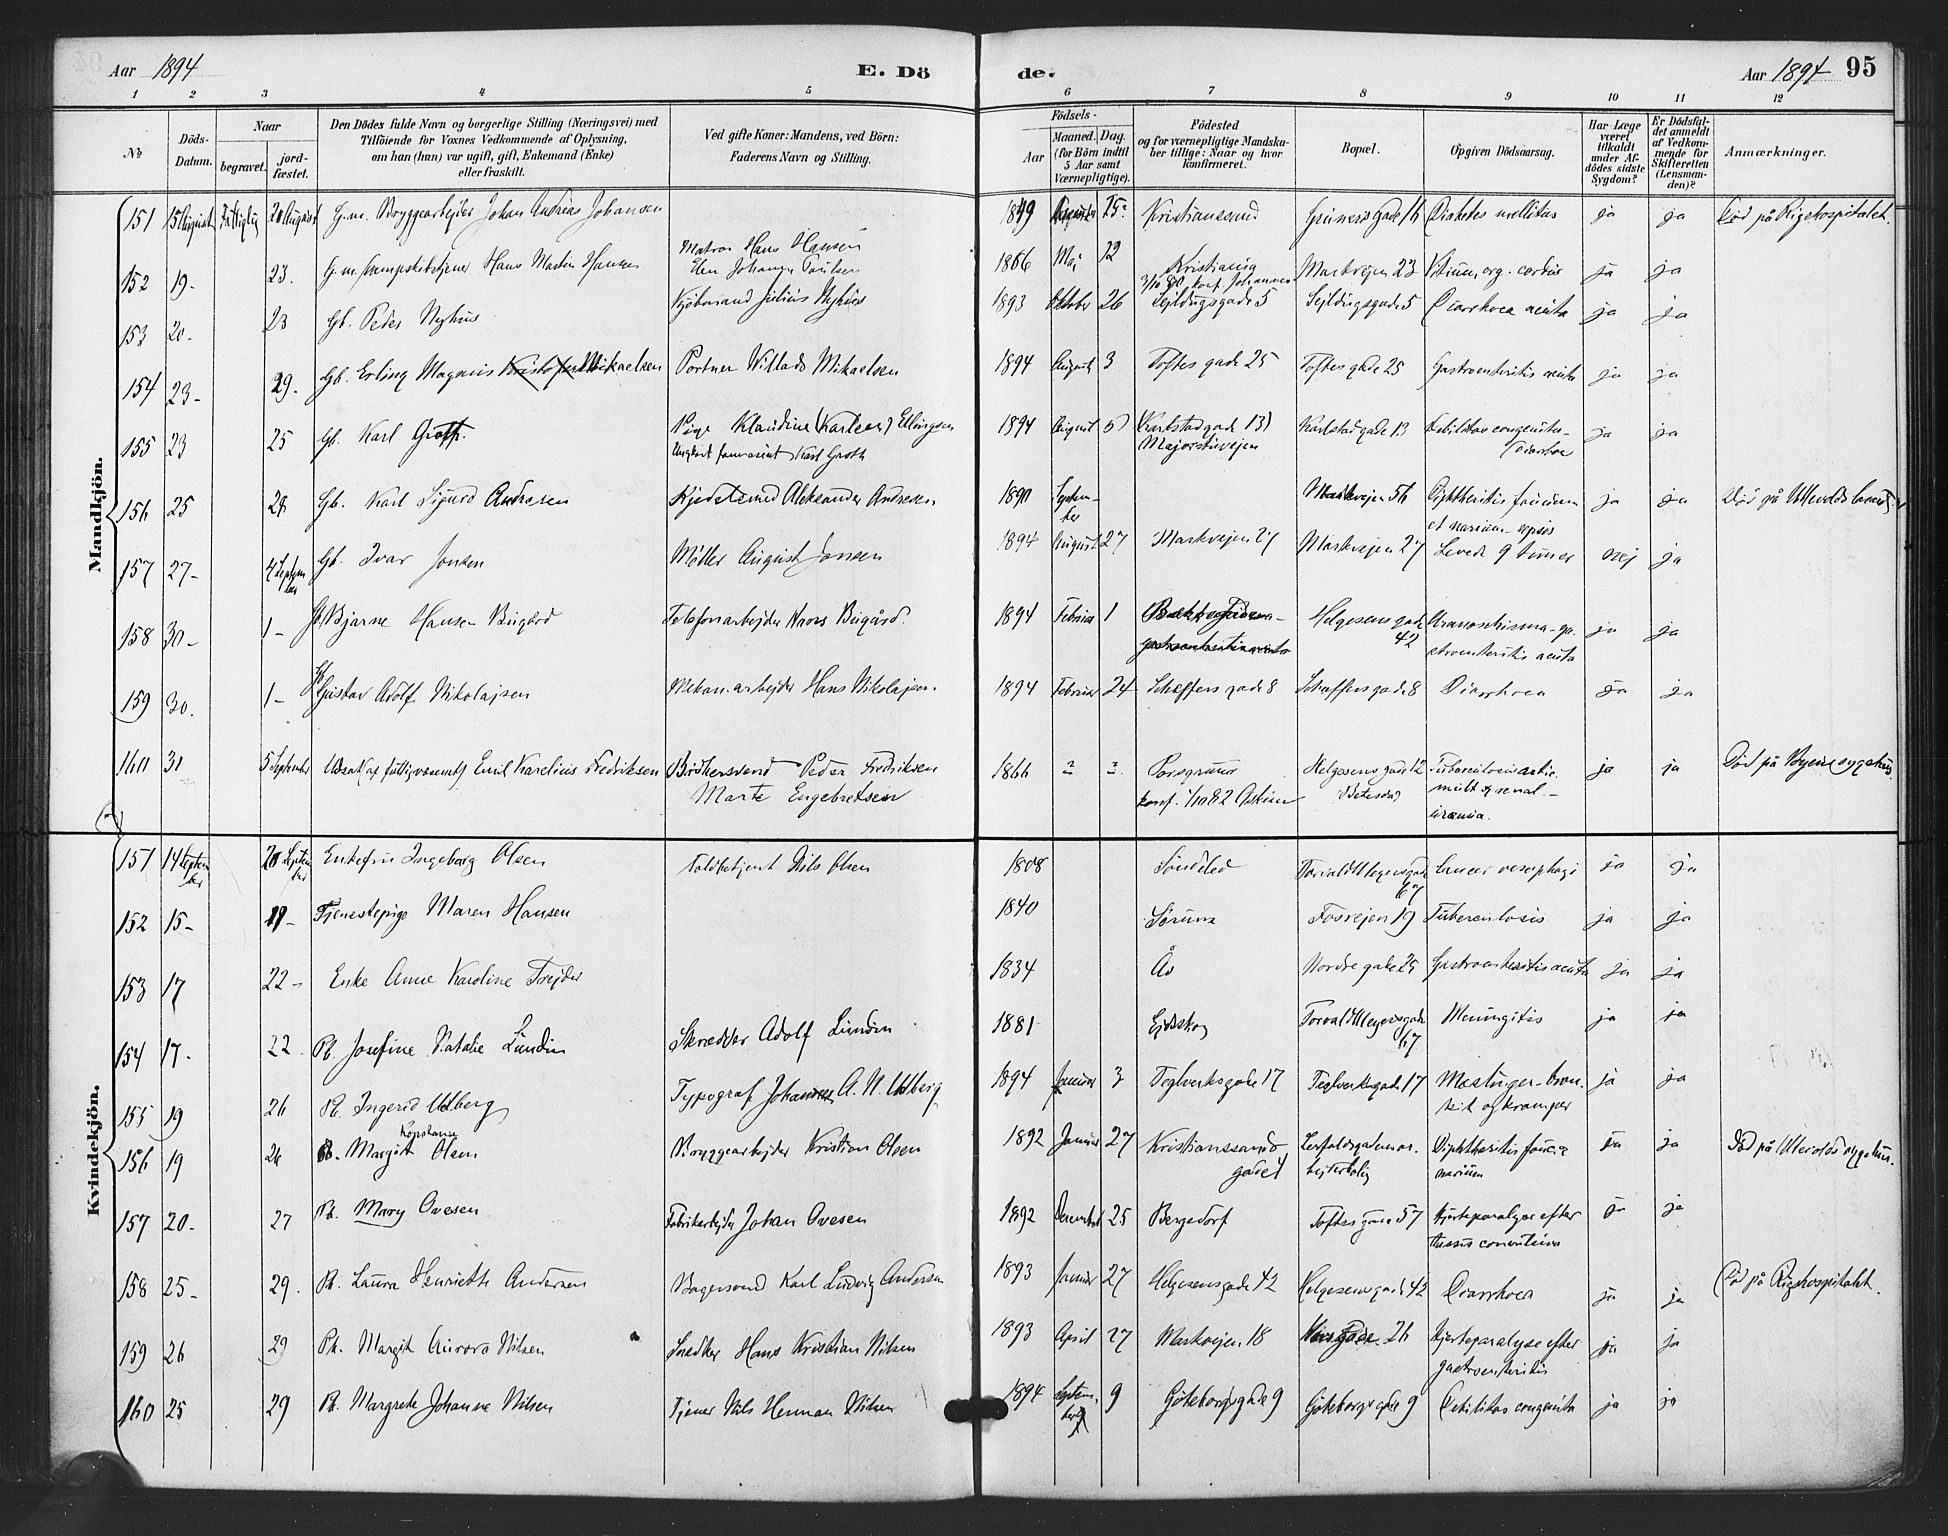 Aar 1894
E. Döde.
Aar 1894 95
1 2 3 4 5 6 7 8 9 10 11 12
No
Döds-Datum.
Naar
begravet.
jord-fæstet.
Den Dödes fulde Navn og borgerlige Stilling (Næringsvei) med
Tilföiende for Voxnes Vedkommende af Oplysning,
om han (hun) var ugift, gift, Enkemand (Enke)
eller fraskilt.
Ved gifte Koner: Mandens, ved Börn:
Faderens Navn og Stilling.
Födsels-
Aar
Maaned. Dag.
(for Börn indtil
5 Aar samt
Værnepligtige).
Födested
og for værnepligtige Mandska-
ber tillige: Naar og hvor
konfirmeret.
Bopæl.
Opgiven Dödsaarsag.
Har Læge
været
tilkaldt
under Af-
dödes sidste
Sygdom?
Er Dödsfal-
det anmeldt
af Vedkom-
mende for
Skifteretten
(Lensman-
den)?
Anmærkninger.
Mandkjön.
151 15 August 20 August G.m. Bryggearbejder Johan Andreas Johansen 1849 25 Kristianssund Grüners Gade 16 Diabetes mellitus ja ja Död på Rigshospitalet.
152 19- 23. G.m. Hans Martin Hansen Matros Hans Hansen
1866 Mai 12 Kristiania Markvejen 23 Vitium org. cordis ja ja
153 20- 23 Gb. Peder Nyhus Kjöbmand Julius Nyhus 1893 Oktober 26 Sejldugsgade 5 Sejldugsgade 5 Diarrhoea acuta ja ja
154 23- 29- Gb. Erling Magnus Mikaelsen Portner Willads Mikaelsen 1894 August 3 Toftes gade 25 Toftes gade 25 Gastroenteritis acuta ja ja
155 23 25 Gb. Karl Groth. Pige Klaudine (Karlsen) Ellingsen
Karl Groth
1894 August 5 (Karlstadgade 13)
Majorstuvejen
Karlstadgade 13 Debilitas congenita- ja ja
156 25 28 Gb. Karl Sigurd Andresen Aleksander Andresen 1890 Septem-
ber
Markvejen 56 Diphtheritis faucium
et narium - sepsis
ja ja Död på Ullevolds
157 27- 4 Septem
ber
Gb. Ivar Jensen Møller August Jensen 1894 August 27 Markvejen 27 Markvejen 27 Levede 9 timer nej ja
158 30- 1- Gb. Bjarne Hansen Telefonarbejder Hans 1894 Februar 1 Helgesens gade
42
etroenteritis acuta
ja ja
159 30. 1- Gb. Gustav Adolf Nikolajsen Mekan. arbejder Hans Nikolajsen. 1894 Februar 24 Schaffers gade 8 Schaffers gade 8 Diarrhoea ja ja
160 31 5 September Emil Karelius Fredriksen Bödkersvend Peder Fredriksen
Marte Engebretsen
1866 Porsgrund
Helgesens gade 12
ja ja Död på Byens sygehus
Kvindekjön.
151 14 Septem
ber
20 Septem
ber
Enkefru Ingeborg Olsen Toldbetjent Nils Olsen 1808 Söndeled Torvald Meyersgade
67
Cancer oesophagi ja ja
152 15- 19- Tjenestepige Maren Hansen 1840 Sörum Fossvejen 19 Tuberculosis ja ja
153 17 22- Enke Anne Karoline Trejder 1834 Ås Nordre gade 25 Gastroenteritis acuta ja ja
154 17- 22. Pb. Josefine Natalie Lundin Skrædder Adolf Lundin 1881 Ejdskog Torvald Meyersgade
67
Meningitis ja ja
155 19 26 Pb. Ingerid Udberg Typograf Johannes A. N. Udberg 1894 Januar 3 Teglverksgade 17 Teglverksgade 17 Mæslinger - bron-
kit og kramper
ja ja
156 19 26 Pb. Margit Konstanse Olsen Bryggearbejder Kristian Olsen 1892 Januar 27 Kristianssunds
gade 1
bejderbolig
Diphtheritis faucium
narium
ja ja Död på Ullevolds sygehus.
157 20- 27 Pb. Mary Ovesen Fabrikarbejder Johan Ovesen 1892 December 25 Bergedorf Toftes gade 57 Hjerteparalyse efter
tussis convulsiva
ja ja
158 25- 29. Pb. Laura Henriette Andersen Bagersvend Karl Ludvig Andersen 1893 Januar 27 Helgesensgade 42 Helgesens gade 42 Diarrhoea ja ja Död på Rigshospitalet.
159 26 29 Pb. Margit Aurora Nilsen Snedker Hans Kristian Nilsen 1893 April 27 Markvejen 18 26 Hjerteparalyse efter
gastroenteritis
ja ja
160 25 29 Pb. Margrete Johanne Nilsen Tjener Nils Herman Nilsen 1894 Septem-
ber
9 Göteborgsgade 9 Göteborgs gade 9 Debilitas congenita ja ja